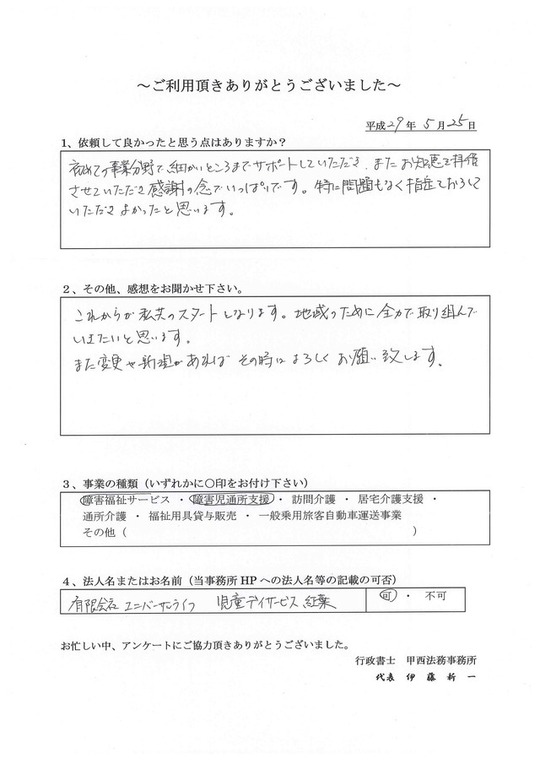 ～ご利用頂きありがとうございました～
平成29年5月25日
1、依頼して良かったと思う点はありますか？
初めての事業分野で細かいところまでサポートしていただき、またお知恵を拝借
させていただき感謝の念でいっぱいです。特に問題もなく指定でおろして
いただきよかったと思います。
2、その他、感想をお聞かせ下さい。
これからが私共のスタートとなります。地域のために全力で取り組んで
いきたいと思います。
また変更や新規があればその時はよろしくお願い致します。
3、事業の種類（いずれかに〇印をお付け下さい）
障害福祉サービス ・ 障害児通所支援 ・ 訪問介護 ・ 居宅介護支援 ・
通所介護 ・ 福祉用具貸与販売 ・ 一般乗用旅客自動車運送事業
その他（ ）
4、法人名またはお名前（当事務所HPへの法人名等の記載の可否）
有限会社 ユニバーサルライフ 児童デイサービス 紅葉 可 ・ 不可
お忙しい中、アンケートにご協力頂きありがとうございました。
行政書士 甲西法務事務所
代表 伊藤新一